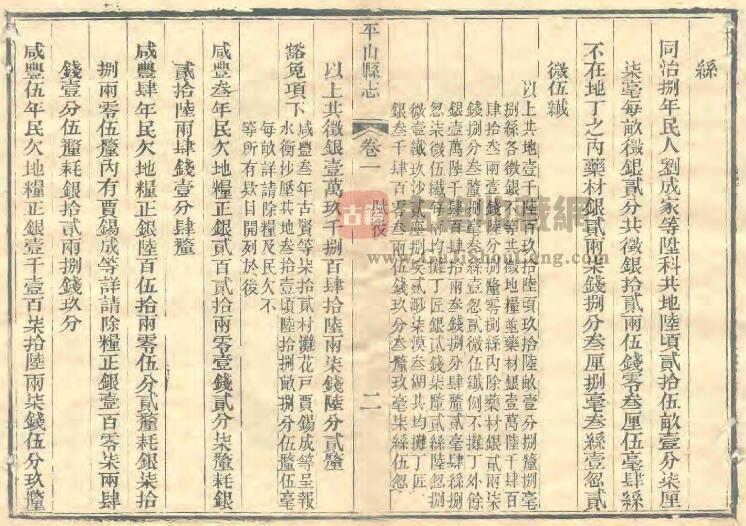 絲
同治捌年民人劉成家等陞科共地陸頃貳拾伍畝壹分柒厘
柒毫每畝徵銀貳分共徵銀拾貳兩伍錢零叁厘伍毫肆絲
不在地丁之丙藥材銀貳兩柒錢捌分叁厘捌毫叁絲壹忽貳
微伍纖
以上共地壹千陸百玖拾陸頃玖拾陸畝壹分捌釐捌毫
捌絲各徵銀不等共徵地糧並藥材銀壹萬陸千肆百
肆拾叁兩壹錢陸分捌釐零捌絲內除藥材銀貳兩柒
錢捌分叁釐捌毫叁絲壹忽貳微伍纖例不攤丁外餘
銀壹萬陸千肆百肆拾兩叁錢捌分肆釐貳毫肆絲捌
忽柒微伍纖每兩均攤丁匠銀貳錢柒釐貳絲陸忽捌
微壹纖玖沙貳塵捌埃貳渺柒漠叁糊共均攤丁匠
銀叁千肆百零叁兩伍錢玖分叁釐玖毫柒絲伍忽
平山縣志
卷一
賦役
二
以上共徵銀壹萬玖千捌百肆拾陸兩柒錢陸分貳釐
豁免項下
咸豐叁年古賢等柒拾貳村灘花戶賈錫成等呈報
水衝沙壓共地叁拾壹頃陸拾捌畝捌分伍釐伍毫
每畝詳請除糧及民欠不
等所有欵目開列於後
咸豐叁年民欠地糧正銀貳百貳拾兩零壹錢貳分柒釐耗銀
貳拾陸兩肆錢壹分肆釐
咸豐肆年民欠地糧正銀陸百伍拾兩零伍分貳釐耗銀柒拾
捌兩零伍釐內有賈錫成等詳請除糧正銀壹百零柒兩肆
錢壹分伍釐耗銀拾貳兩捌錢玖分
咸豐伍年民欠地糧正銀壹千壹百柒拾陸兩柒錢伍分玖釐
古籍
www.GuJiShouCang.com